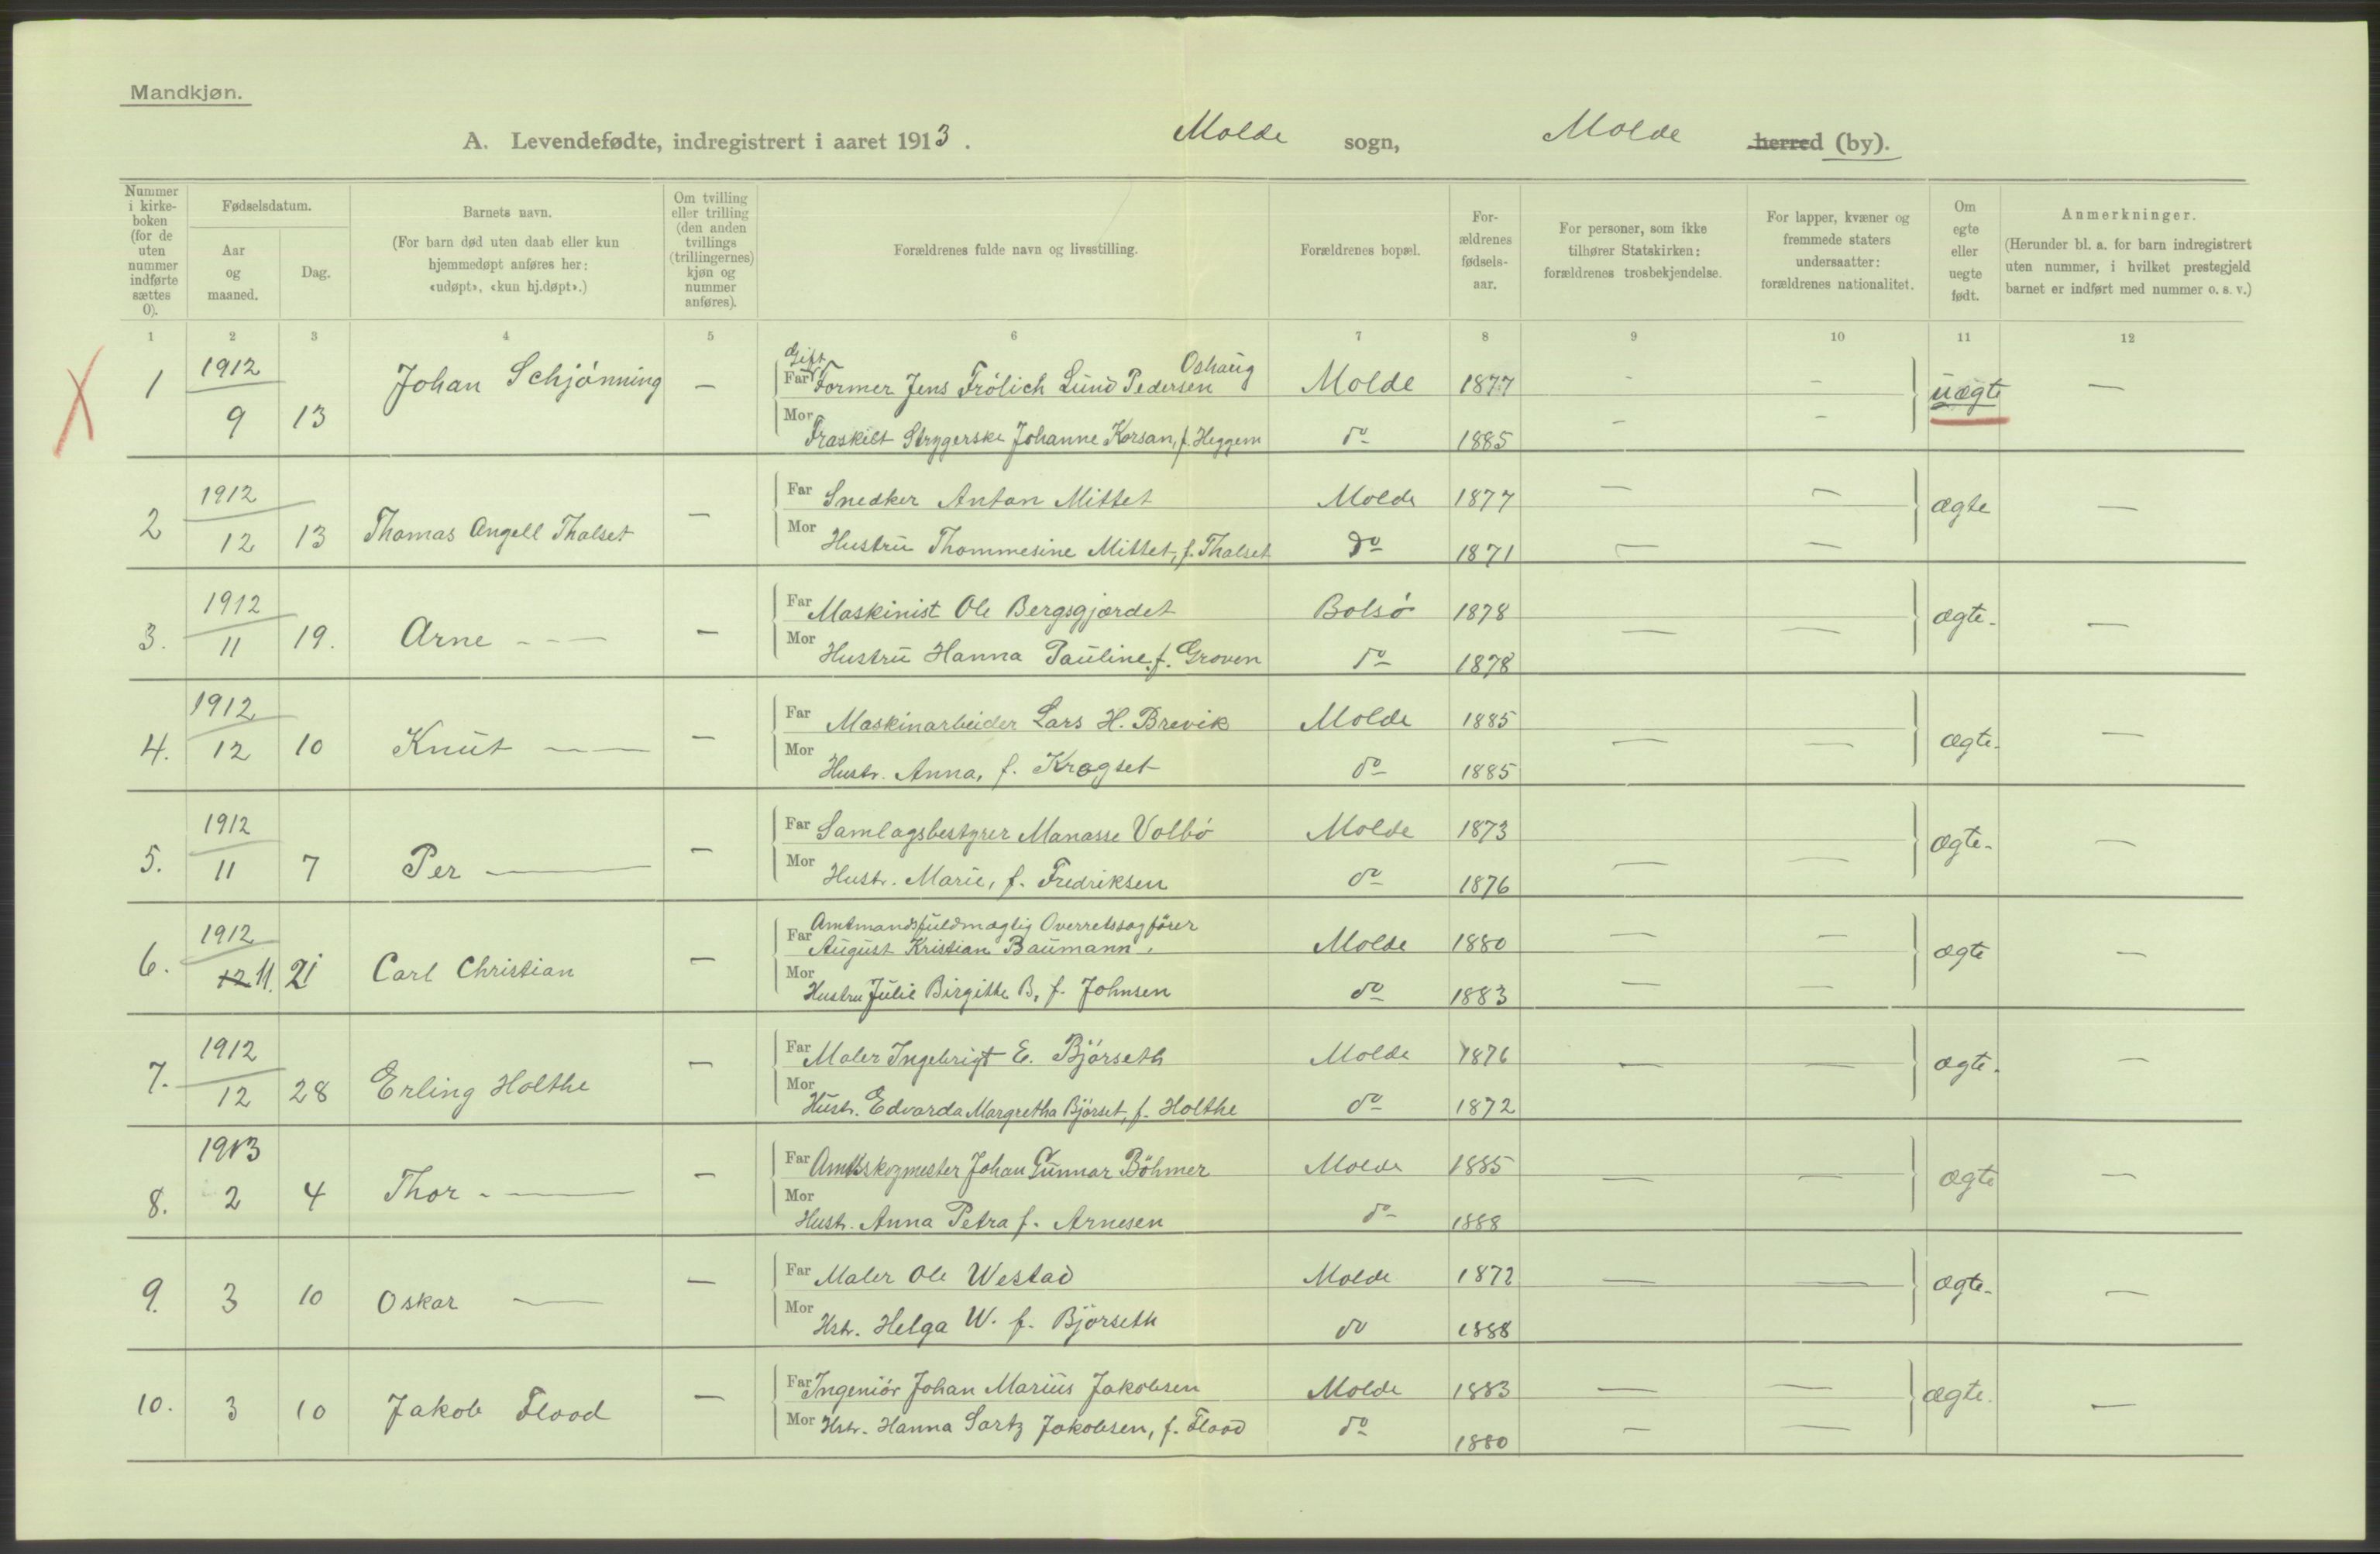 Mandkjøn.
A. Levendefødte, indregistrert i aaret 1913. Molde sogn, Molde herred (by).
Nummer i kirkeboken (for de uten nummer indførte sættes 0).
Fødselsdatum.
Aar og maaned.
Dag.
Barnets navn.
(For barn død uten daab eller kun hjemmedøpt anføres her: «udøpt», «kun hj.døpt».)
Om tvilling eller trilling (den anden tvillings (trillingernes) kjøn og nummer anføres).
Forældrenes fulde navn og livsstilling.
Forældrenes bopæl.
For-ældrenes fødsels-aar.
For personer, som ikke tilhører Statskirken: forældrenes trosbekjendelse.
For lapper, kvæner og fremmede staters undersaatter: forældrenes nationalitet.
Om egte eller uegte født.
Anmerkninger.
(Herunder bl. a. for barn indregistrert uten nummer, i hvilket prestegjeld barnet er indført med nummer o. s. v.)
1 2 3 4 5 6 7 8 9 10 11 12
X 1 1912 9 13 Johan Schjönning — Gift
Far Former Jens Frölich Lund Pedersen Oshaug Molde 1877 - - uægte —
Mor Fraskilt Strygerske Johanne Korsan, f. Heggem do 1885 - -
2 1912 12 13 Thomas Angell Thalset —
Far Snedker Anton Mittet Molde 1877 — — ægte —
Mor Hustru Thommesine Mittet, f. Thalset do 1871 — —
3. 1912 11 19. Arne - - — —
Far Maskinist Ole Bergsgjærdet Bolsö 1878 ægte- —
Mor Hustru Hanna Pauline, f. Groven do 1878 — —
4. 1912 12 10 Knut — — —
Far Maskinarbeider Lars H. Brevik Molde 1885 ægte- —
Mor Hustr. Anna, f. Kragset do 1885 — —
5. 1912 11 7 Per — —
Far Samlagsbestyrer Manasse Volbö Molde 1873 ægte- —
Mor Hustr. Marie, f. Fredriksen do 1876 — —
6. 1912 12 11. 21 Carl Christian —
Amtmandsfuldmægtig Overretssagförer
Far August Kristian Baumann, Molde 1880 — — ægte —
Mor Hustru Julie Birgitte B, f. Johnsen do 1883 — —
7. 1912 12 28 Erling Holthe —
Far Maler Ingebrigt E. Björseth Molde 1876 — — ægte. —
Mor Hustr. Edvarda Margretha Björset, f. Holthe do 1872
8. 1913 2 4 Thor - — —
Far Amtsskogmester Johan Gunnar Böhmer Molde 1885 — — ægte —
Mor Hustr. Anna Petra f. Arnesen do 1888
9. 3 10 Oskar — —
Far Maler Ole Westad Molde 1872 — — ægte- —
Mor Hstr. Helga W. f. Björseth do 1888
10. 3 10 Jakob Flood —
Far Ingeniör Johan Marius Jakobsen Molde 1883 — — ægte. —
Mor Hstr. Hanna Sartz Jakobsen, f. Flood do 1880 — —